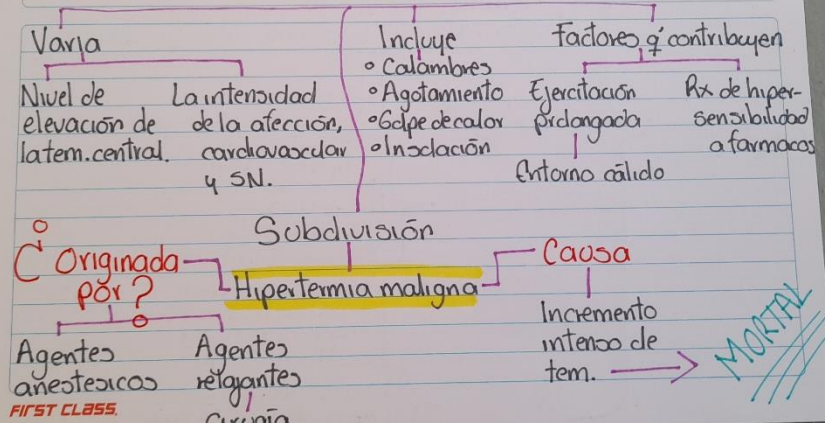 Varia
Nivel de
elevación de
la tem. central.
La intensidad
de la afección,
cardiovascular
y SN.
Incluye
Calambres
Agotamiento
Golpe de calor
Insolación
Factores q' contribuyen
Ejercitación
prolongada
Entorno cálido
Rx de hiper-
sensibilidad
a farmacos
Subdivisión
Hipertermia maligna
¿Originada
por?
Agentes
anestesicos
Agentes
relajantes
Cirugía
Causa
Incremento
intenso de
tem.
MORTAL
FIRST CLASS.